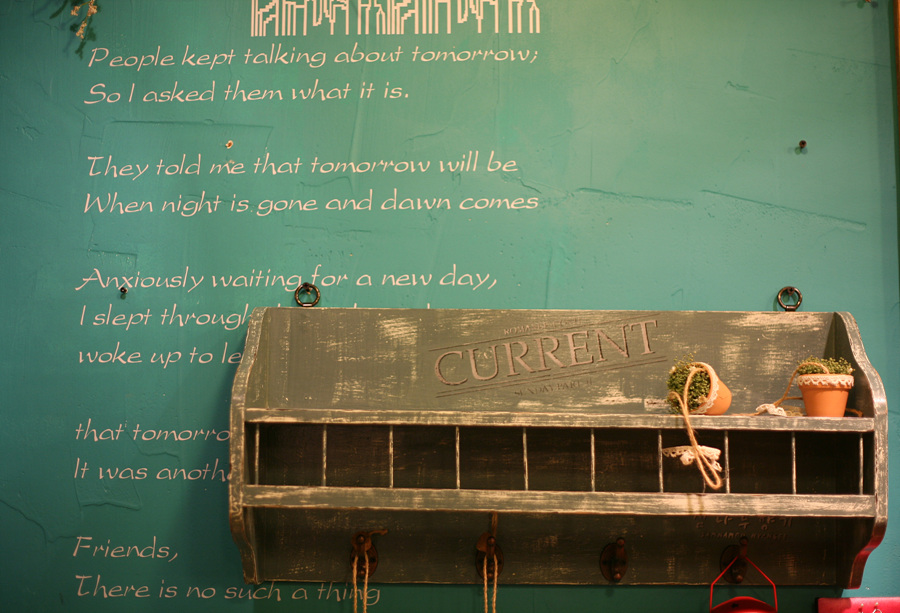 People kept talking about tomorrow;
So I asked them what it is.
They told me that tomorrow will be
When night is gone and dawn comes
Anxiously waiting for a new day,
I slept through
woke up to
that
It was
Friends,
There is no such a thing
CURRENT